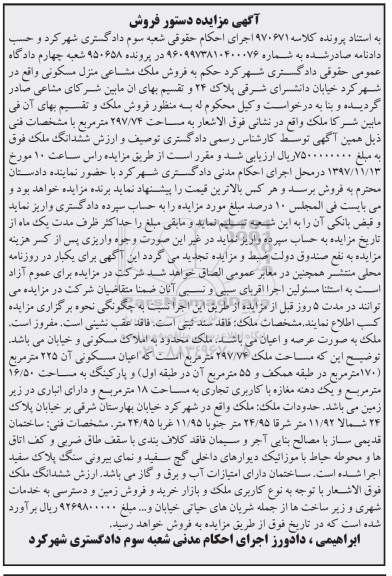 آگهی مزایده دستور فروش
به استناد پرونده کلاسه ۹۷۰۶۷۱ اجرای احکام حقوقی شعبه سوم دادگستری شهرکرد و حسب
دادنامه صادرشده به شماره ۹۶۰۹۹۷۳۸۱۰۴۰۰۰۷۶ در پرونده ۹۵۰۶۵۸ شعبه چهارم دادگاه
عمومی حقوقی دادگستری شهرکرد حکم به فروش ملک مشاعی منزل مسکونی واقع در
شهرکرد خیابان دانشسرای شرقی پلاک ۲۴ و تقسیم بهای ان مابین شرکای مشاعی صادر
گردیده و بنا به درخواست وکیل محکوم له به منظور فروش ملک و تقسیم بهای آن فی
مابین شرکا ملک واقع در نشانی فوق الاشعار به مساحت ۲۹۷/۷۴ مترمربع با مشخصات فنی
ذیل همین آگهی توسط کارشناس رسمی دادگستری توصیف و ارزش ششدانگ ملک فوق
به مبلغ ۷۵۰۰۰۰۰۰۰۰ ریال ارزیابی شد و مقرر است از طریق مزایده راس ساعت ۱۰ مورخ
۱۳۹۷/۱۱/۱۳ درمحل اجرای احکام مدنی دادگستری شهرکرد با حضور نماینده دادستان
محترم به فروش برسد و هر کس بالاترین قیمت را پیشنهاد نماید برنده مزایده خواهد بود و
می بایست فی المجلس ۱۰ درصد مبلغ مورد مزایده را به حساب سپرده دادگستری واریز نماید
و قبض بانکی آن را به این شعبه تسلیم نماید و مابقی مبلغ را حداکثر ظرف مدت یک ماه از
تاریخ مزایده به حساب سپرده واریز نماید در غیر این صورت وجوه واریزی پس از کسر هزینه
مزایده به نفع صندوق دولت ضبط و مزایده تجدید می گردد این آگهی برای یکبار در روزنامه
محلی منتشر همچنین در معابر عمومی الصاق خواهد شد شرکت در مزایده برای عموم آزاد
است به استثنا مسئولین اجرا اقربای سببی و نسبی آنان ضمنا متقاضیان شرکت در مزایده می
توانند در مدت ۵ روز قبل از مزایده از طریق این اجرا نسبت به چگونگی نحوه برگزاری مزایده
کسب اطلاع نمایند.مشخصات ملک: فاقد سند ثبتی است. فاقد عقب نشینی است. مفروز است.
ملک به صورت عرصه و اعیان می باشد. ملک محدود به املاک مسکونی و خیابان می باشد.
توضیح این که مساحت ملک ۲۹۷/۷۴ مترمربع است که اعیان مسکونی آن ۲۲۵ مترمربع
(۱۷۰مترمربع در طبقه همکف و ۵۵ مترمربع آن در طبقه اول) و پارکینگ به مساحت ۱۶/۵۰
مترمربع و یک دهنه مغازه با کاربری تجاری به مساحت ۱۸ مترمربع و دارای انباری در زیر
زمین می باشد. حدودات ملک: ملک واقع در شهرکرد خیابان بهارستان شرقی بر خیابان پلاک
۲۴ شمالا ۱۱/۹۲ متر شرقا ۲۴/۹۵ متر جنوبا ۱۱/۹۵ غربا ۲۴/۹۵ متر. مشخصات فنی: ساختمان
قدیمی ساز با مصالح بنایی آجر و سیمان فاقد کلاف بندی با سقف طاق ضربی و کف اتاق
ها و محوطه حیاط با موزائیک دیوارهای داخلی گچ سفید و نمای بیرونی سنگ پلاک سفید
اجرا شده است. ساختمان دارای امتیازات آب و برق و گاز می باشد. ارزش ششدانگ ملک
فوق الاشعار با توجه به نوع کاربری ملک و بازار خرید و فروش زمین و دسترسی به خدمات
شهری و زیر ساخت ها از جمله شریان های حیاتی خیابان و... مبلغ ۹۲۶۹۸۰۰۰۰۰ ریال برآورد
شده است که در تاریخ فوق از طریق مزایده به فروش خواهد رسید.
ابراهیمی ، دادورز اجرای احکام مدنی شعبه سوم دادگستری شهرکرد